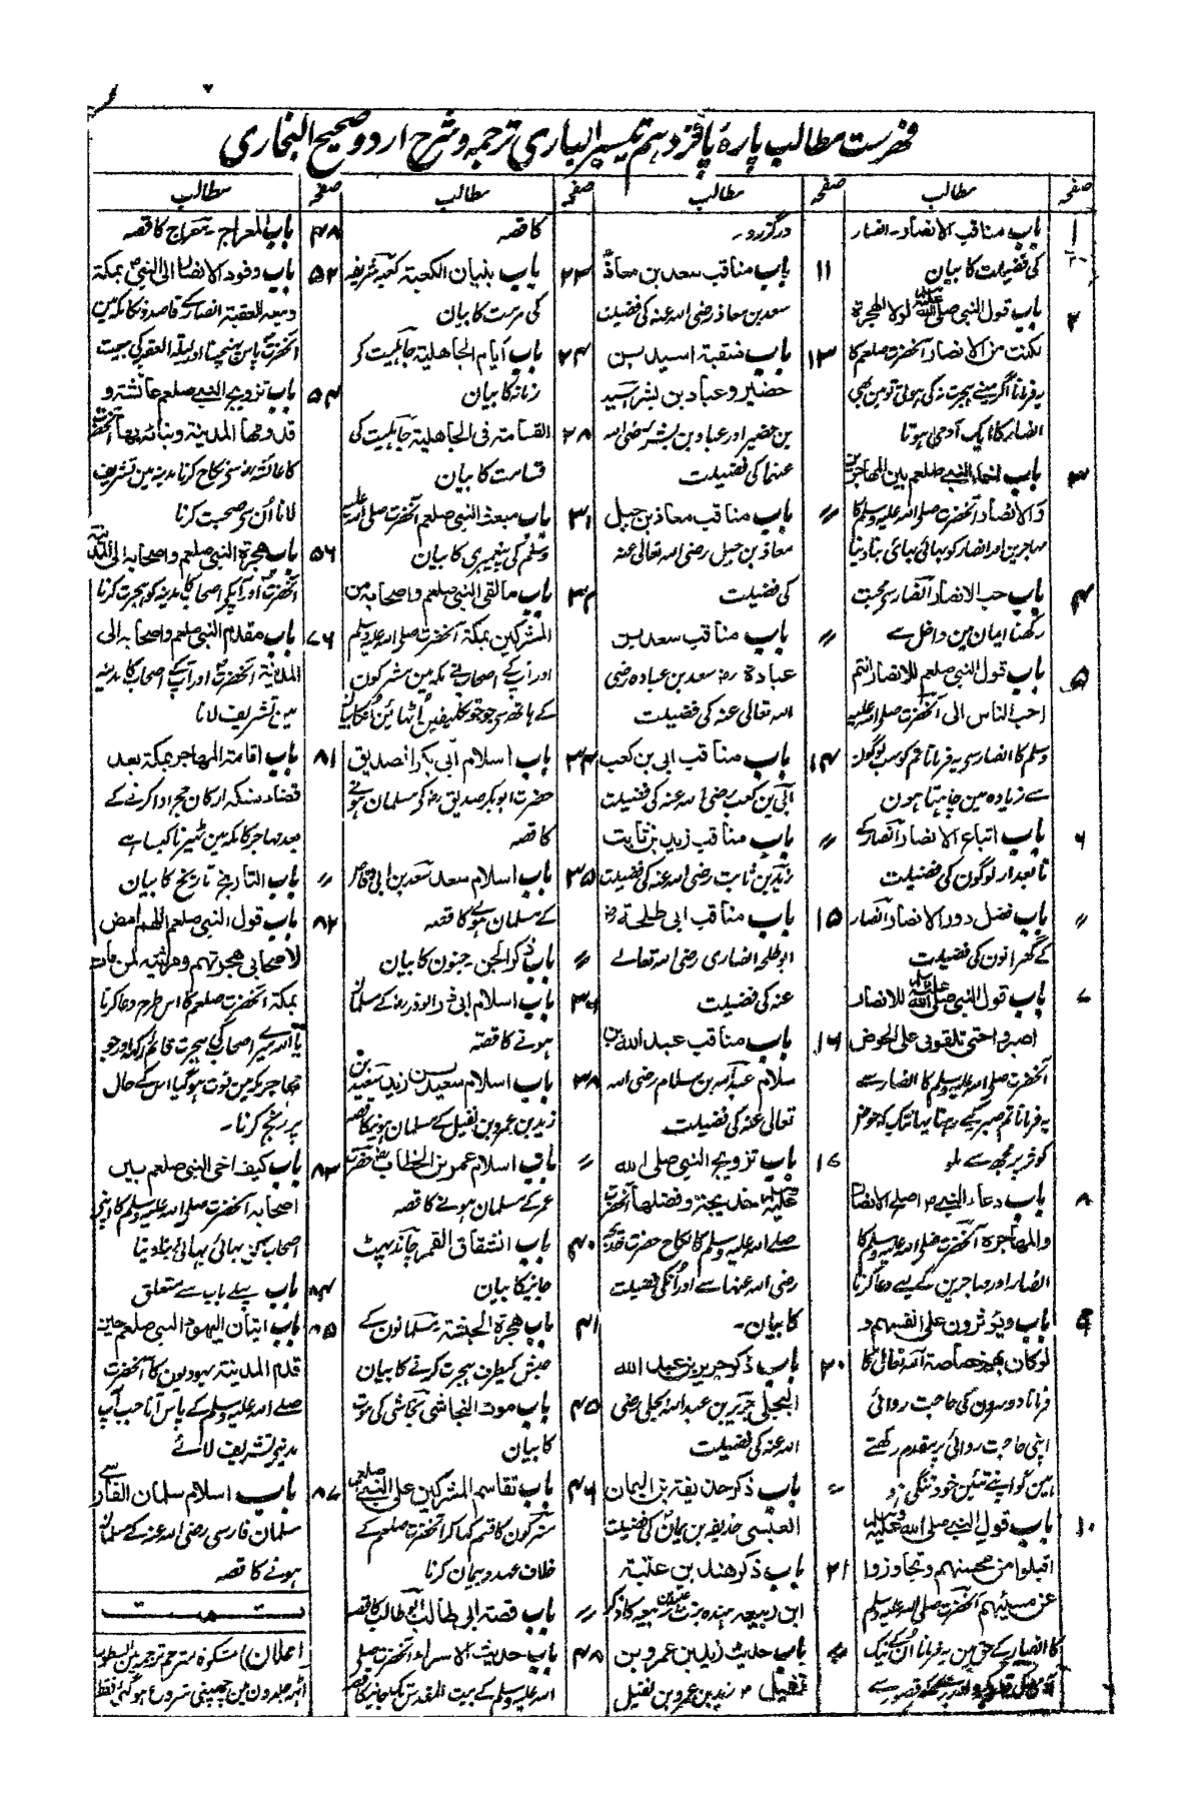 فہرست مطالب پارۂ پانزدہم تیسیر الباری ترجمہ و شرح اردو صحیح البخاری
صفحہ مطالب
۱ باب مناقب الانصار۔ انصار
کی فضیلت کا بیان
۲ باب قول النبی صلی اللہ علیہ وسلم لولا الهجرة
لکنت من الانصار آنحضرت صلعم کا
یہ فرمانا اگر مینے ہجرت نہ کی ہوتی تو مین بھی
انصار کا ایک آدمی ہوتا
۳ باب اخاء النبی صلعم بین المهاجرین
والانصار آنحضرت صلی اللہ علیہ وسلم کا
مہاجرین اور انصار کو بھائی بھائی بنا دینا
۴ باب حب الانصار انصار سے محبت
رکھنا ایمان مین داخل ہے
۵ باب قول النبی صلعم للانصار انتم
احب الناس الی آنحضرت صلی اللہ علیہ
وسلم کا انصار سے یہ فرمانا تم کو سب لوگون
سے زیادہ مین چاہتا ہون
۶ باب اتباع الانصار انصار کے
تابعدار لوگون کی فضیلت
〃 باب فضل دور الانصار انصار
کے گھرانون کی فضیلت
۷ باب قول النبی صلی اللہ علیہ وسلم للانصار
اصبروا حتی تلقونی علی الحوض
آنحضرت صلی اللہ علیہ وسلم کا انصار سے
یہ فرمانا تم صبر کیے رہنا یہانتک کہ حوض
کوثر پر مجھ سے ملو
۸ باب دعاء النبی ؐ اصلح الانصار
والمهاجرة آنحضرت صلی اللہ علیہ وسلم کا
انصار اور مہاجرین کے لیے دعا کرنا
۹ باب ویؤثرون علی انفسهم و
لو کان بهم خصاصة اللہ تعالی کا
فرمانا دوسرون کی حاجت روائی
اپنی حاجت روائی پر مقدم رکھتے
ہین گو اپنے تئین خود تنگی ہو
۱۰ باب قول النبی صلی اللہ علیہ وسلم
اقبلوا من محسنهم وتجاوزوا
عن مسیئهم آنحضرت صلی اللہ علیہ وسلم
کا انصار کے حق مین یہ فرمانا ان کے نیک
قصور سے
صفحہ مطالب
درگزرو۔
۱۱ باب مناقب سعد بن معاذ
سعد بن معاذ رضی اللہ عنہ کی فضیلت
۱۳ باب منقبة اسید بن
حضیر وعباد بن بشر اسید
بن حضیر اور عباد بن بشر رضی اللہ
عنہما کی فضیلت
〃 باب مناقب معاذ بن جبل
معاذ بن جبل رضی اللہ تعالی عنہ
کی فضیلت
〃 باب مناقب سعد بن
عبادة رضہ سعد بن عبادہ رضی
اللہ تعالی عنہ کی فضیلت
۱۴ باب مناقب ابی بن کعب
ابی بن کعب رضی اللہ عنہ کی فضیلت
〃 باب مناقب زید بن ثابت
زید بن ثابت رضی اللہ عنہ کی فضیلت
۱۵ باب مناقب ابی طلحة رضہ
ابو طلحہ انصاری رضی اللہ تعالے
عنہ کی فضیلت
۱۶ باب مناقب عبد اللہ بن
سلام عبد اللہ بن سلام رضی اللہ
تعالی عنہ کی فضیلت
۱۷ باب تزویج النبی صلی اللہ
علیہ وسلم خدیجة وفضلها آنحضرت
صلے اللہ علیہ وسلم کا نکاح حضرت خدیجہ
رضی اللہ عنہا سے اور انکی فضیلت
کا بیان۔
۲۰ باب ذکر جریر بن عبد اللہ
البجلی جریر بن عبد اللہ بجلی رضی
اللہ عنہ کی فضیلت
〃 باب ذکر حذیفة بن الیمان
العبسی حذیفہ بن یمان کی فضیلت
۲۱ باب ذکر هند بن عتبة
ابن ربیعہ ہندہ بنت عتبہ بن ربیعہ کا ذکر
〃 باب حدیث زید بن عمرو بن
نفیل ؐ زید بن عمرو بن نفیل
صفحہ مطالب
کا قصہ
۲۳ باب بنیان الکعبة کعبہ شریفہ
کی مرمت کا بیان
۲۴ باب ایام الجاهلیة جاہلیت کے
زمانہ کا بیان
۲۸ القسامة فی الجاهلیة جاہلیت کی
قسامت کا بیان
۳۱ باب مبعث النبی صلعم آنحضرت صلی اللہ علیہ
وسلم کی پیغمبری کا بیان
۳۲ باب ما لقی النبی صلعم واصحابہ من
المشرکین بمکة آنحضرت صلی اللہ علیہ وسلم
اور آپکے اصحاب نے مکہ مین مشرکون
کے ہاتھ سے جو جو تکلیفین اٹھائین انکا بیان
۳۴ باب اسلام ابی بکر الصدیق
حضرت ابو بکر صدیق رضہ کے مسلمان ہونے
کا قصہ
۳۵ باب اسلام سعد سعد بن ابی وقاص
کے مسلمان ہونے کا قصہ
〃 باب ذکر الجن۔ جنون کا بیان
۳۶ باب اسلام ابی ذر ابوذر رضہ کے مسلمان
ہونے کا قصہ
۳۸ باب اسلام سعید بن زید سعید بن
زید بن عمرو بن نفیل کے مسلمان ہونیکا قصہ
〃 باب اسلام عمر بن الخطاب حضرت
عمر کے مسلمان ہونے کا قصہ
۴۰ باب انشقاق القمر چاند پھٹ
جانیکا بیان
۴۱ باب هجرة الحبشة مسلمانون کے
حبش کیطرف ہجرت کرنے کا بیان
۴۵ باب موت النجاشی نجاشی کی موت
کا بیان
۴۶ باب تقاسم المشرکین علی النبی صلعم
مشرکون کا قسم کھا کر آنحضرت صلعم کے
خلاف عہد و پیمان کرنا
〃 باب قصة ابی طالب ابو طالب کا قصہ
۴۸ باب حدیث الاسراء آنحضرت صلی
اللہ علیہ وسلم کے بیت المقدس تک جانیکا قصہ
صفحہ مطالب
۴۸ باب المعراج۔ معراج کا قصہ
۵۲ باب وفود الانصار الی النبی ؐ بمکة
وبیعة العقبة انصار کے قاصدونکا مکہ مین
آنحضرت پاس پہنچنا اور لیلۃ العقبہ کی بیعت
۵۴ باب تزویج النبی صلعم عائشة و
قدومها المدینة وبنائہ بها آنحضرت
کا عائشہ رضہ سے نکاح کرنا مدینہ مین تشریف
لانا ان سے صحبت کرنا
۵۶ باب هجرة النبی صلعم واصحابہ الی المدینة
آنحضرت اور آپکے اصحاب کا مدینہ کو ہجرت کرنا
۷۶ باب مقدم النبی صلعم واصحابہ الی
المدینة آنحضرت اور آپکے اصحاب کا مدینہ
مین تشریف لانا
۸۱ باب اقامة المهاجر بمکة بعد
قضاء نسکہ ارکان حج ادا کرنے کے
بعد مہاجر کا مکہ مین ٹھیرنا کیسا ہے
〃 باب التاریخ تاریخ کا بیان
۸۲ باب قول النبی صلعم اللهم امض
لاصحابی هجرتهم ومرثیتہ لمن مات
بمکة آنحضرت صلعم کا اس طرح دعا کرنا
یا اللہ میرے اصحاب کی ہجرت قائم رکھ اور جو
مہاجر مکہ مین فوت ہو گیا اس کے حال
پر رنج کرنا۔
۸۳ باب کیف اخی النبی صلعم بین
اصحابہ آنحضرت صلی اللہ علیہ وسلم کا اپنے
اصحاب کو بھائی بھائی بنا دینا
۸۴ باب پہلے باب سے متعلق
۸۵ باب اتیان الیهود النبی صلعم حین
قدم المدینة یہودیون کا آنحضرت
صلے اللہ علیہ وسلم کے پاس آنا جب آپ
مدینے تشریف لائے
۸۷ باب اسلام سلمان الفارسی
سلمان فارسی رضی اللہ عنہ کے مسلمان
ہونے کا قصہ
تمت
(اعلان) مشکوة مترجم ترجمہ بین السطور
آٹھ جلدون مین چھپنی شروع ہو گئی فقط